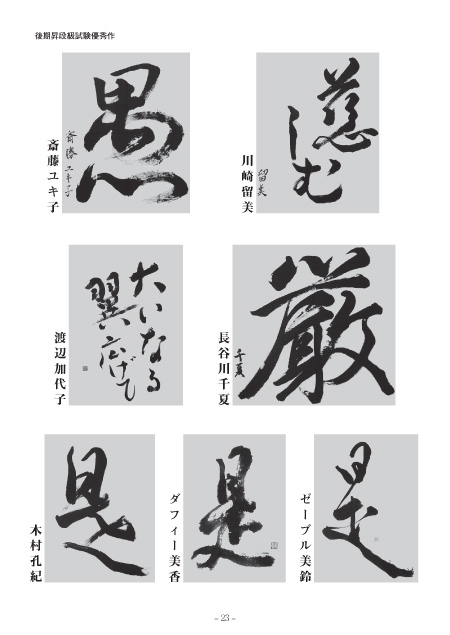 後期昇段級試験優秀作
慈しむ
留美
川崎留美
愚
斎藤ユキ子
斎藤ユキ子
厳
千夏
長谷川千夏
大いなる
翼広げて
渡辺加代子
是
ゼーブル美鈴
是
ダフィー美香
是
木村孔紀
- 23 -